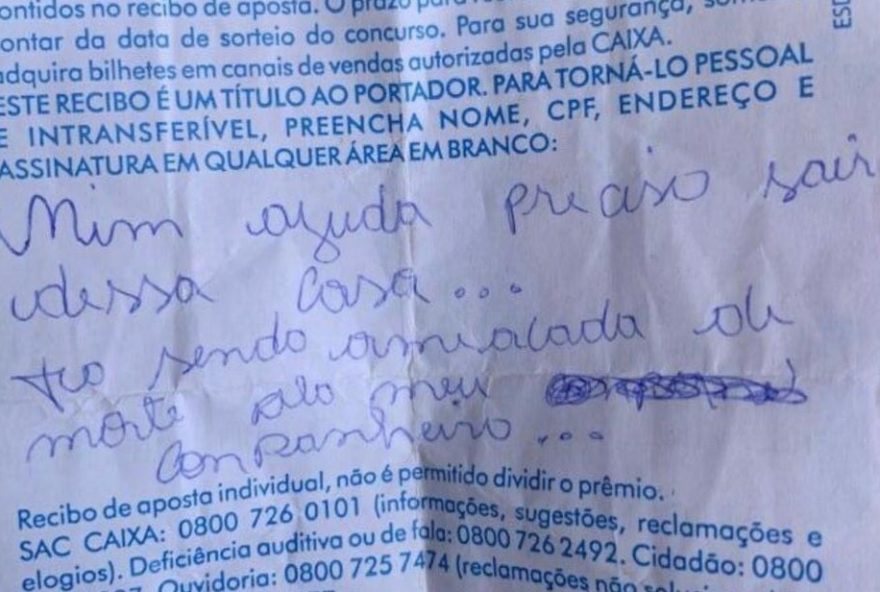 ontidos no recibo de aposta. O prazo para
ontar da data de sorteio do concurso. Para sua segurança,
adquira bilhetes em canais de vendas autorizadas pela CAIXA.
ESTE RECIBO É UM TÍTULO AO PORTADOR. PARA TORNÁ-LO PESSOAL
E INTRANSFERÍVEL, PREENCHA NOME, CPF, ENDEREÇO E
ASSINATURA EM QUALQUER ÁREA EM BRANCO:
Mim ajuda preciso sair
dessa casa...
to sendo amiacada de
morte pelo meu
companheiro...
Recibo de aposta individual, não é permitido dividir o prêmio.
SAC CAIXA: 0800 726 0101 (informações, sugestões, reclamações e
elogios). Deficiência auditiva ou de fala: 0800 726 2492. Cidadão: 0800
Ouvidoria: 0800 725 7474 (reclamações não